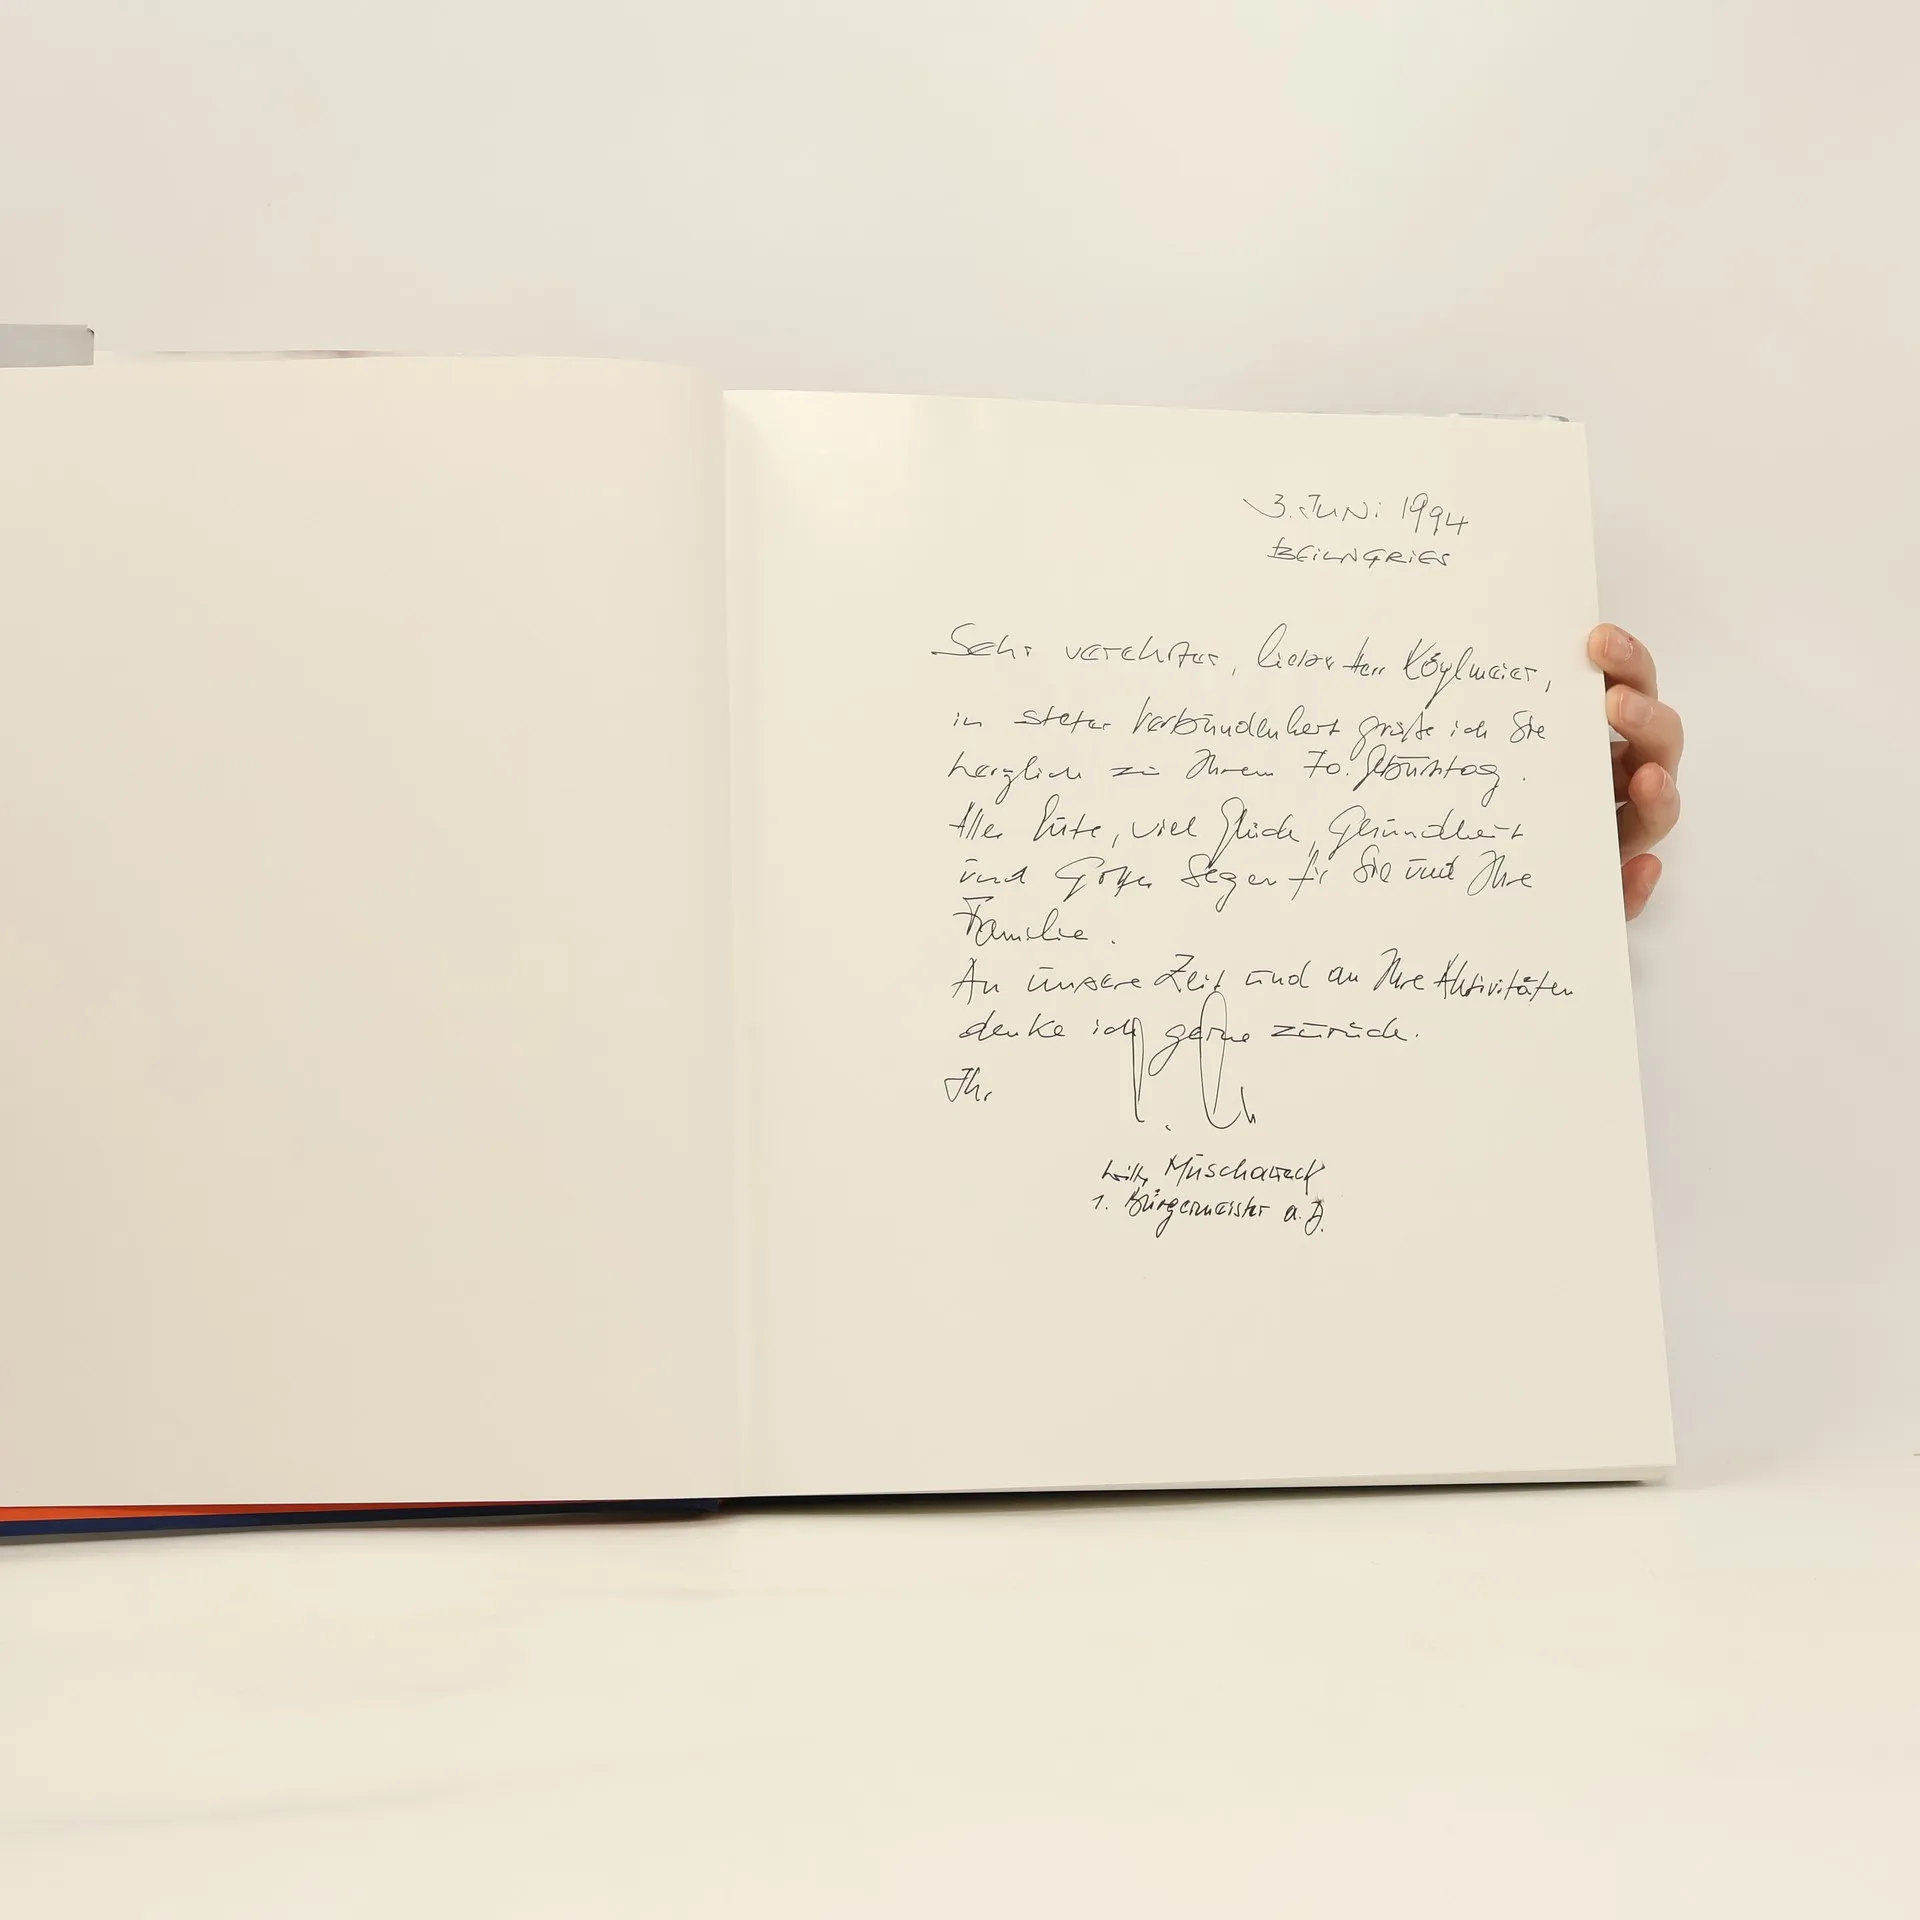 3. JUNi 1994
BEILNGRIES
Sehr verehrter, lieber Herr Köglmeier,
in steter Verbundenheit grüße ich Sie
herzlich zu Ihrem 70. Geburtstag.
Alles Gute, viel Glück, Gesundheit
und Gottes Segen für Sie und Ihre
Familie.
An unsere Zeit und an Ihre Aktivitäten
denke ich gerne zurück.
Ihr
Willy Muschaweck
1. Bürgermeister a.D.